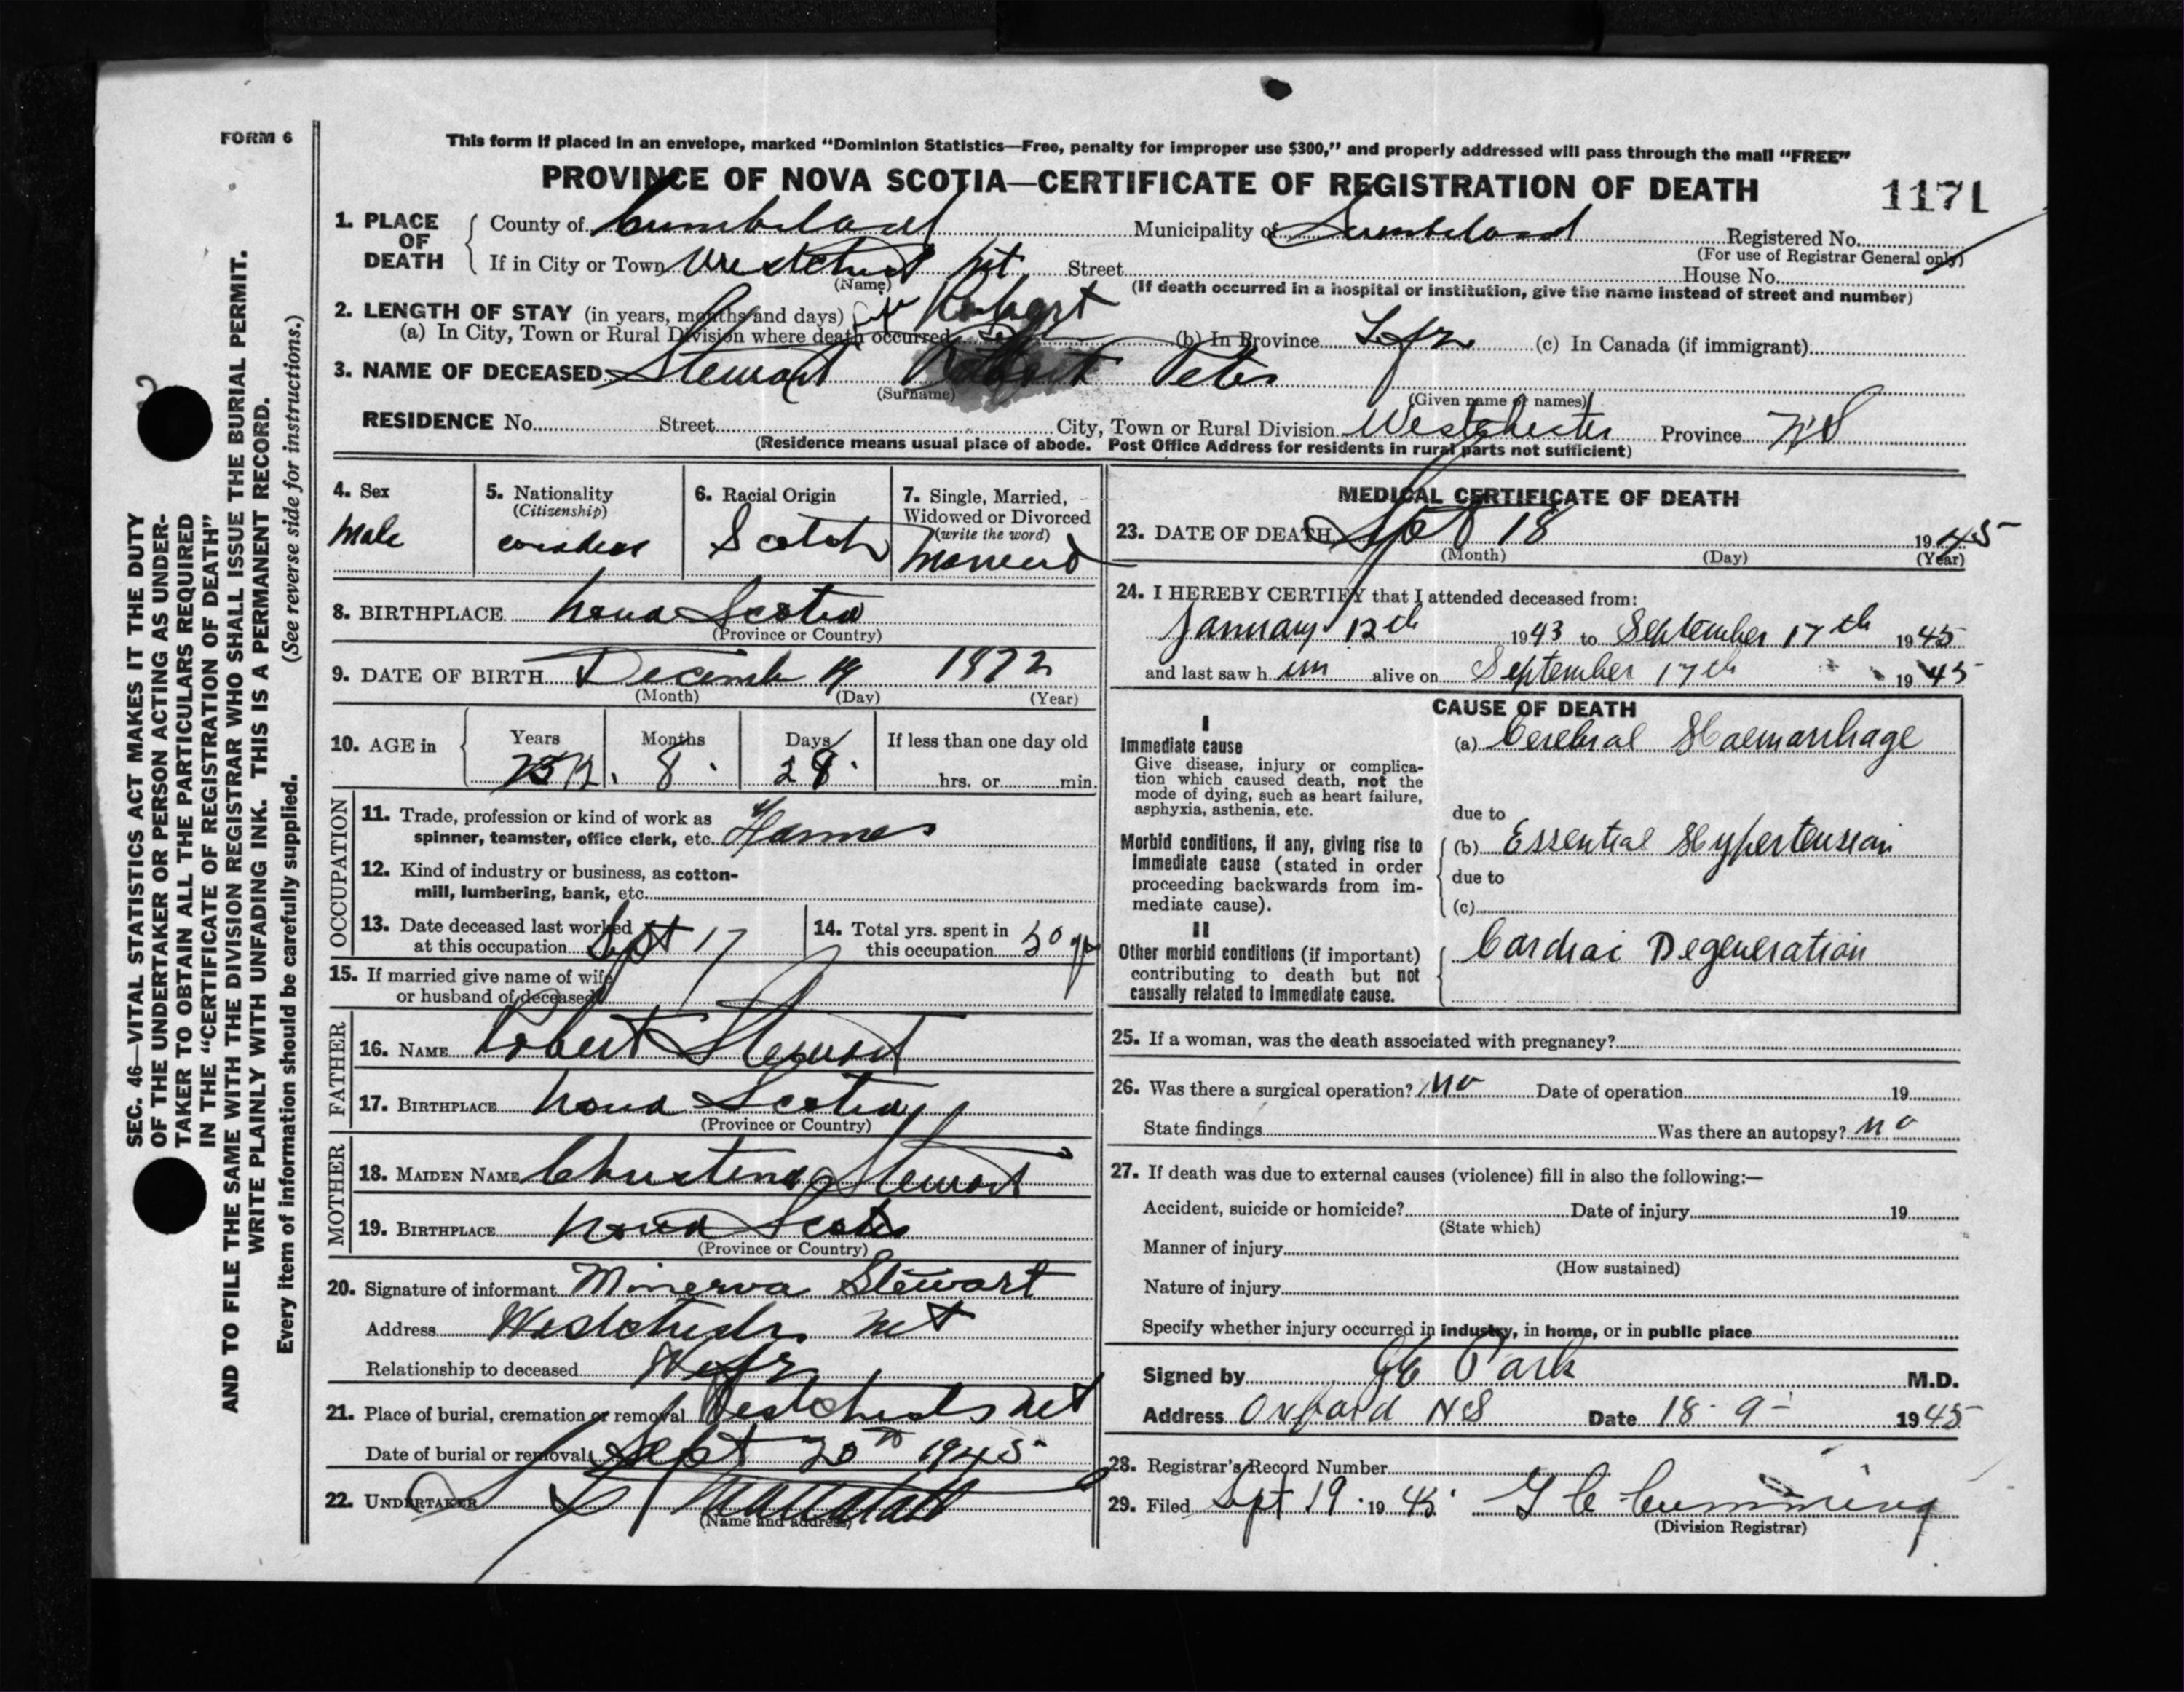 FORM 6
This form if placed in an envelope, marked “Dominion Statistics—Free, penalty for improper use $300,” and properly addressed will pass through the mail “FREE”
PROVINCE OF NOVA SCOTIA—CERTIFICATE OF REGISTRATION OF DEATH
1171
1. PLACE OF DEATH
County of Cumberland Municipality of Cumberland Registered No.
(For use of Registrar General only)
If in City or Town Westchester Street House No.
(Name)
(If death occurred in a hospital or institution, give the name instead of street and number)
2. LENGTH OF STAY (in years, months and days) Life Robert
(a) In City, Town or Rural Division where death occurred (b) In Province Life (c) In Canada (if immigrant)
3. NAME OF DECEASED Stewart Robert Peter
(Surname) (Given name or names)
RESIDENCE No. Street City, Town or Rural Division Westchester Province N S
(Residence means usual place of abode. Post Office Address for residents in rural parts not sufficient)
4. Sex
Male
5. Nationality
(Citizenship)
6. Racial Origin
Scotch
7. Single, Married,
Widowed or Divorced
(write the word)
Married
8. BIRTHPLACE Nova Scotia
(Province or Country)
9. DATE OF BIRTH December 19 1872
(Month) (Day) (Year)
10. AGE in Years Months Days If less than one day old
72. 8. 28. hrs. or min.
OCCUPATION
11. Trade, profession or kind of work as
spinner, teamster, office clerk, etc. Farmer
12. Kind of industry or business, as cotton-
mill, lumbering, bank, etc.
13. Date deceased last worked
at this occupation Sept 17
14. Total yrs. spent in
this occupation 50 yr
15. If married give name of wife
or husband of deceased
FATHER
16. NAME Robert Stewart
17. BIRTHPLACE Nova Scotia
(Province or Country)
MOTHER
18. MAIDEN NAME Christena Stewart
19. BIRTHPLACE Nova Scotia
(Province or Country)
20. Signature of informant Minerva Stewart
Address Westchester
Relationship to deceased Wife
21. Place of burial, cremation or removal Westchester
Date of burial or removal Sept 20th 1945
22. UNDERTAKER
(Name and address)
MEDICAL CERTIFICATE OF DEATH
23. DATE OF DEATH Sept 18 1945
(Month) (Day) (Year)
24. I HEREBY CERTIFY that I attended deceased from:
January 12th 1943 to September 17th 1945
and last saw him alive on September 17th 1945
CAUSE OF DEATH
I
Immediate cause
Give disease, injury or complica-
tion which caused death, not the
mode of dying, such as heart failure,
asphyxia, asthenia, etc.
(a) Cerebral Haemorrhage
due to
Morbid conditions, if any, giving rise to
immediate cause (stated in order
proceeding backwards from im-
mediate cause).
(b) Essential Hypertension
due to
(c)
II
Other morbid conditions (if important)
contributing to death but not
causally related to immediate cause.
Cardiac Degeneration
25. If a woman, was the death associated with pregnancy?
26. Was there a surgical operation? No Date of operation 19
State findings Was there an autopsy? No
27. If death was due to external causes (violence) fill in also the following:—
Accident, suicide or homicide? Date of injury 19
(State which)
Manner of injury
(How sustained)
Nature of injury
Specify whether injury occurred in industry, in home, or in public place
Signed by Park M.D.
Address Oxford NS Date 18-9- 1945
28. Registrar's Record Number
29. Filed Sept 19 1945 G C Cumming
(Division Registrar)
SEC. 46—VITAL STATISTICS ACT MAKES IT THE DUTY
OF THE UNDERTAKER OR PERSON ACTING AS UNDER-
TAKER TO OBTAIN ALL THE PARTICULARS REQUIRED
IN THE “CERTIFICATE OF REGISTRATION OF DEATH”
AND TO FILE THE SAME WITH THE DIVISION REGISTRAR WHO SHALL ISSUE THE BURIAL PERMIT.
WRITE PLAINLY WITH UNFADING INK. THIS IS A PERMANENT RECORD.
Every item of information should be carefully supplied. (See reverse side for instructions.)